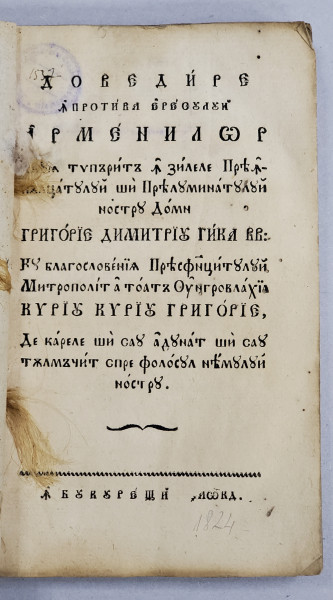 ДОВЕДИ́РЕ
ꙟ҆ПРОТИ́ВА Е҆РЕ́СУЛУЙ
А҆РМЕ́НИЛѠР
ТИПЪРИ́Т ꙟ҆ ЗИ́ЛЕЛЕ ПРѢꙟ҆-
НЪЛЦА́ТУЛУЙ ШИ ПРѢЛУМИНА́ТУЛУЙ
НОСТРУ ДО́МН
ГРИГО́РЇЕ ДИМИТРЇУ ГИ́КА ВВ:
КУ БЛАГОСЛОВЕ́НЇѦ ПРѢСФИНЦИ́ТУЛУЙ
МИТРОПОЛИ́Т А҆ ТОА́ТЪ ОУНГРОВЛА́ХЇѦ
КУРЇУ КУРЇУ ГРИГО́РЇЕ,
ДЕ КА́РЕЛЕ ШИ САУ А҆ДУНА́Т ШИ САУ
ТЪЛМЪЧИ́Т СПРЕ ФОЛО́СУЛ НѢ́МУЛУЙ
НО́СТРУ.
ꙟ҆ БУКУРЕ́ЩЙ ҂АѠКД.
1824